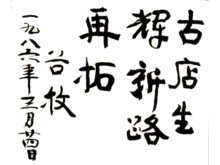 古店生
辉新路
再拓
谷牧
一九八六年三月廿四日